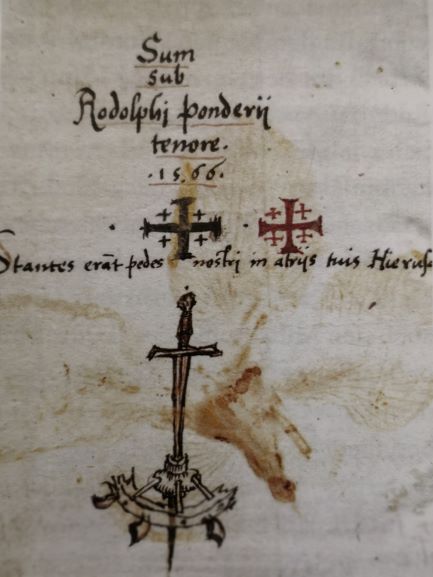 Sum
sub
Rodolphi Ponderii
tenore.
.1566.
Stantes erāt pedes nostri in atrijs tuis Hierusa